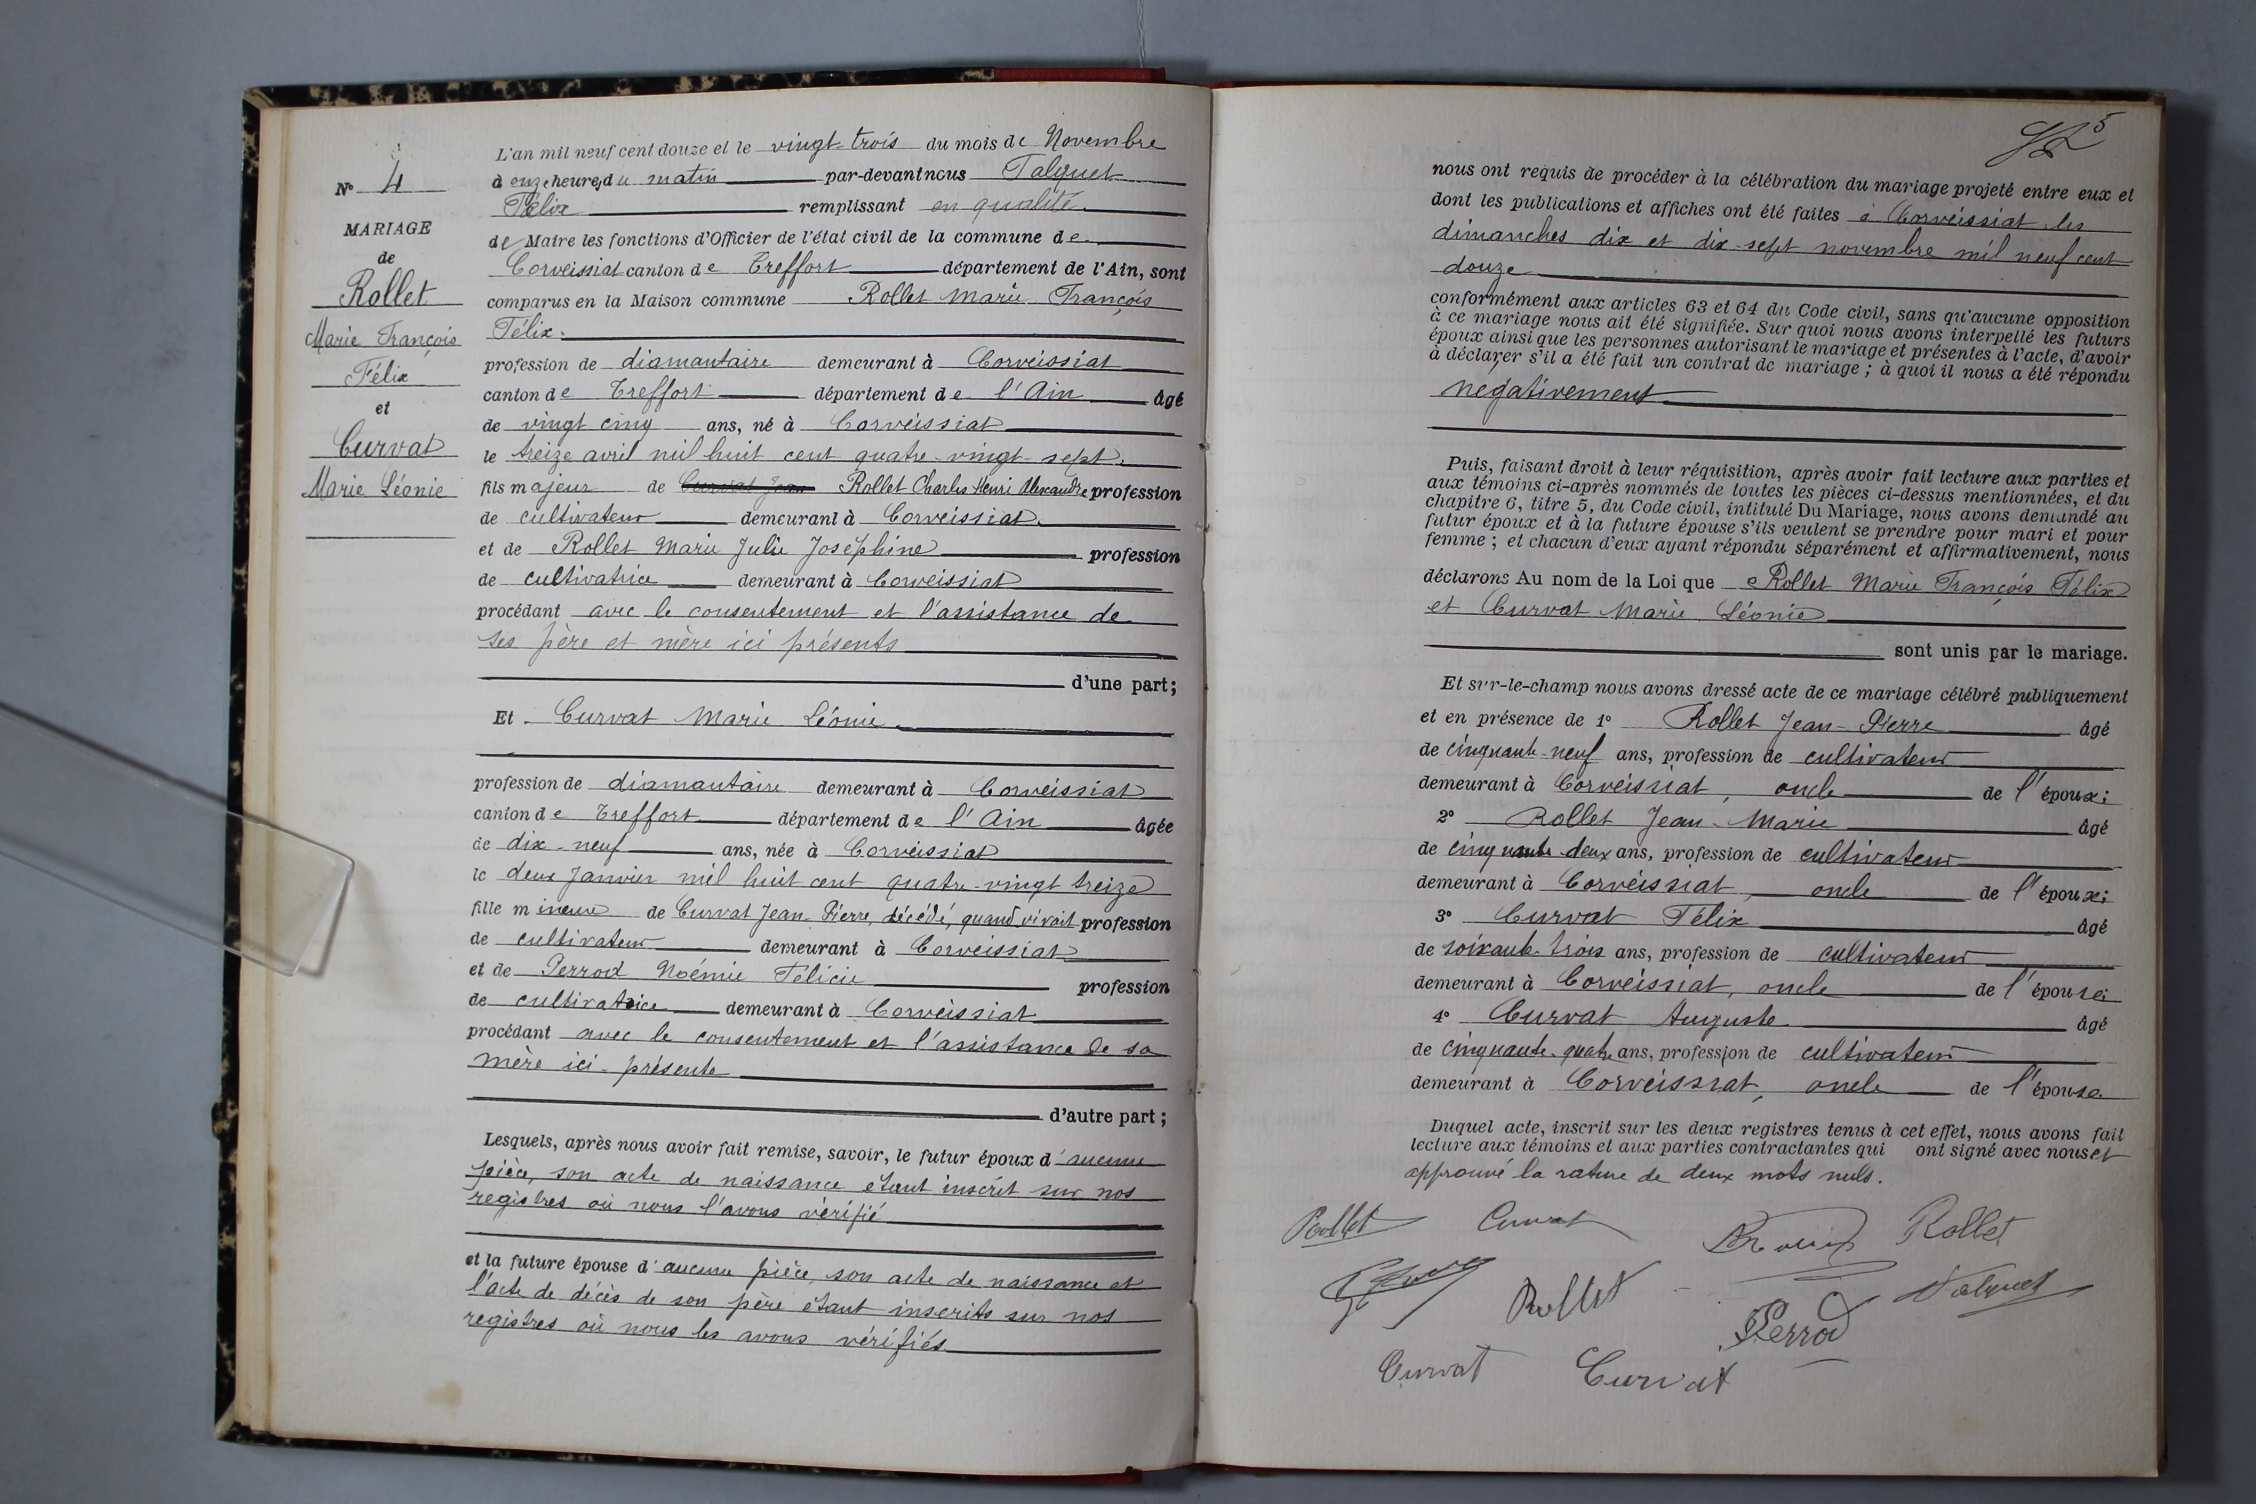 N° 4
MARIAGE
de
Rollet
Marie François
Félix
et
Curvat
Marie Léonie
L'an mil neuf cent douze et le vingt-trois du mois de Novembre
à onze heures du matin par-devant nous Talquet
Félix remplissant en qualité
de Maire les fonctions d'Officier de l'état civil de la commune de
Corveissiat canton de Treffort département de l'Ain, sont
comparus en la Maison commune Rollet Marie François
Félix
profession de diamantaire demeurant à Corveissiat
canton de Treffort département de l'Ain âgé
de vingt cinq ans, né à Corveissiat
le treize avril mil huit cent quatre-vingt-sept
fils majeur de Curvat Jean Rollet Charles Henri Alexandre profession
de cultivateur demeurant à Corveissiat
et de Rollet Marie Julie Joséphine profession
de cultivatrice demeurant à Corveissiat
procédant avec le consentement et l'assistance de
ses père et mère ici présents
d'une part;
Et Curvat Marie Léonie
profession de diamantaire demeurant à Corveissiat
canton de Treffort département de l'Ain âgée
de dix-neuf ans, née à Corveissiat
le deux Janvier mil huit cent quatre-vingt treize
fille mineure de Curvat Jean-Pierre, décédé, quand vivait profession
de cultivateur demeurant à Corveissiat
et de Perrod Noémie Félicie profession
de cultivatrice demeurant à Corveissiat
procédant avec le consentement et l'assistance de sa
mère ici-présente
d'autre part;
Lesquels, après nous avoir fait remise, savoir, le futur époux d'aucune
pièce, son acte de naissance étant inscrit sur nos
registres où nous l'avons vérifié
et la future épouse d'aucune pièce, son acte de naissance et
l'acte de décès de son père étant inscrits sur nos
registres où nous les avons vérifiés
5
nous ont requis de procéder à la célébration du mariage projeté entre eux et
dont les publications et affiches ont été faites à Corveissiat les
dimanches dix et dix-sept novembre mil neuf cent
douze
conformément aux articles 63 et 64 du Code civil, sans qu'aucune opposition
à ce mariage nous ait été signifiée. Sur quoi nous avons interpellé les futurs
époux ainsi que les personnes autorisant le mariage et présentes à l'acte, d'avoir
à déclarer s'il a été fait un contrat de mariage; à quoi il nous a été répondu
négativement
Puis, faisant droit à leur réquisition, après avoir fait lecture aux parties et
aux témoins ci-après nommés de toutes les pièces ci-dessus mentionnées, et du
chapitre 6, titre 5, du Code civil, intitulé Du Mariage, nous avons demandé au
futur époux et à la future épouse s'ils veulent se prendre pour mari et pour
femme; et chacun d'eux ayant répondu séparément et affirmativement, nous
déclarons Au nom de la Loi que Rollet Marie François Félix
et Curvat Marie Léonie
sont unis par le mariage.
Et sur-le-champ nous avons dressé acte de ce mariage célébré publiquement
et en présence de 1° Rollet Jean-Pierre âgé
de cinquante-neuf ans, profession de cultivateur
demeurant à Corveissiat, oncle de l'époux;
2° Rollet Jean-Marie âgé
de cinquante-deux ans, profession de cultivateur
demeurant à Corveissiat, oncle de l'époux;
3° Curvat Félix âgé
de soixante-trois ans, profession de cultivateur
demeurant à Corveissiat, oncle de l'épouse;
4° Curvat Auguste âgé
de cinquante-quatre ans, profession de cultivateur
demeurant à Corveissiat, oncle de l'épouse
Duquel acte, inscrit sur les deux registres tenus à cet effet, nous avons fait
lecture aux témoins et aux parties contractantes qui ont signé avec nous et
approuvé la rature de deux mots nuls.
Rollet Curvat Rollet
Rollet Perrod Talquet
Curvat Curvat